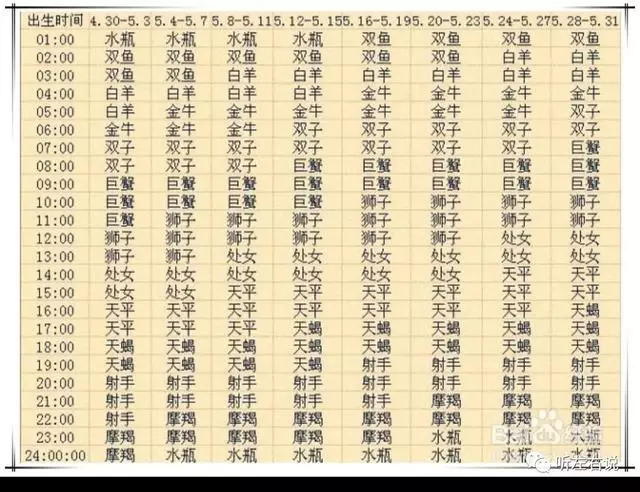 出生时间 4.30-5.3 5.4-5.7 5.8-5.11 5.12-5.15 5.16-5.19 5.20-5.23 5.24-5.27 5.28-5.31
01:00 水瓶 水瓶 水瓶 水瓶 双鱼 双鱼 双鱼 双鱼
02:00 双鱼 双鱼 双鱼 双鱼 双鱼 双鱼 白羊 白羊
03:00 双鱼 双鱼 白羊 白羊 白羊 白羊 白羊 白羊
04:00 白羊 白羊 白羊 白羊 金牛 金牛 金牛 金牛
05:00 白羊 金牛 金牛 金牛 金牛 金牛 金牛 双子
06:00 金牛 金牛 金牛 双子 双子 双子 双子 双子
07:00 双子 双子 双子 双子 双子 双子 双子 巨蟹
08:00 双子 双子 双子 巨蟹 巨蟹 巨蟹 巨蟹 巨蟹
09:00 巨蟹 巨蟹 巨蟹 巨蟹 巨蟹 巨蟹 巨蟹 巨蟹
10:00 巨蟹 巨蟹 巨蟹 巨蟹 狮子 狮子 狮子 狮子
11:00 巨蟹 狮子 狮子 狮子 狮子 狮子 狮子 狮子
12:00 狮子 狮子 狮子 狮子 狮子 狮子 处女 处女
13:00 狮子 狮子 处女 处女 处女 处女 处女 处女
14:00 处女 处女 处女 处女 处女 处女 天平 天平
15:00 处女 处女 天平 天平 天平 天平 天平 天平
16:00 天平 天平 天平 天平 天平 天平 天平 天蝎
17:00 天平 天平 天平 天蝎 天蝎 天蝎 天蝎 天蝎
18:00 天蝎 天蝎 天蝎 天蝎 天蝎 天蝎 天蝎 天蝎
19:00 天蝎 天蝎 天蝎 天蝎 射手 射手 射手 射手
20:00 射手 射手 射手 射手 射手 射手 射手 射手
21:00 射手 射手 射手 射手 射手 摩羯 摩羯 摩羯
22:00 射手 摩羯 摩羯 摩羯 摩羯 摩羯 摩羯 摩羯
23:00 摩羯 摩羯 摩羯 摩羯 水瓶 水瓶
24:00:00 摩羯 水瓶 水瓶 水瓶 水瓶 水瓶 水瓶 水瓶
Bai
听左右说